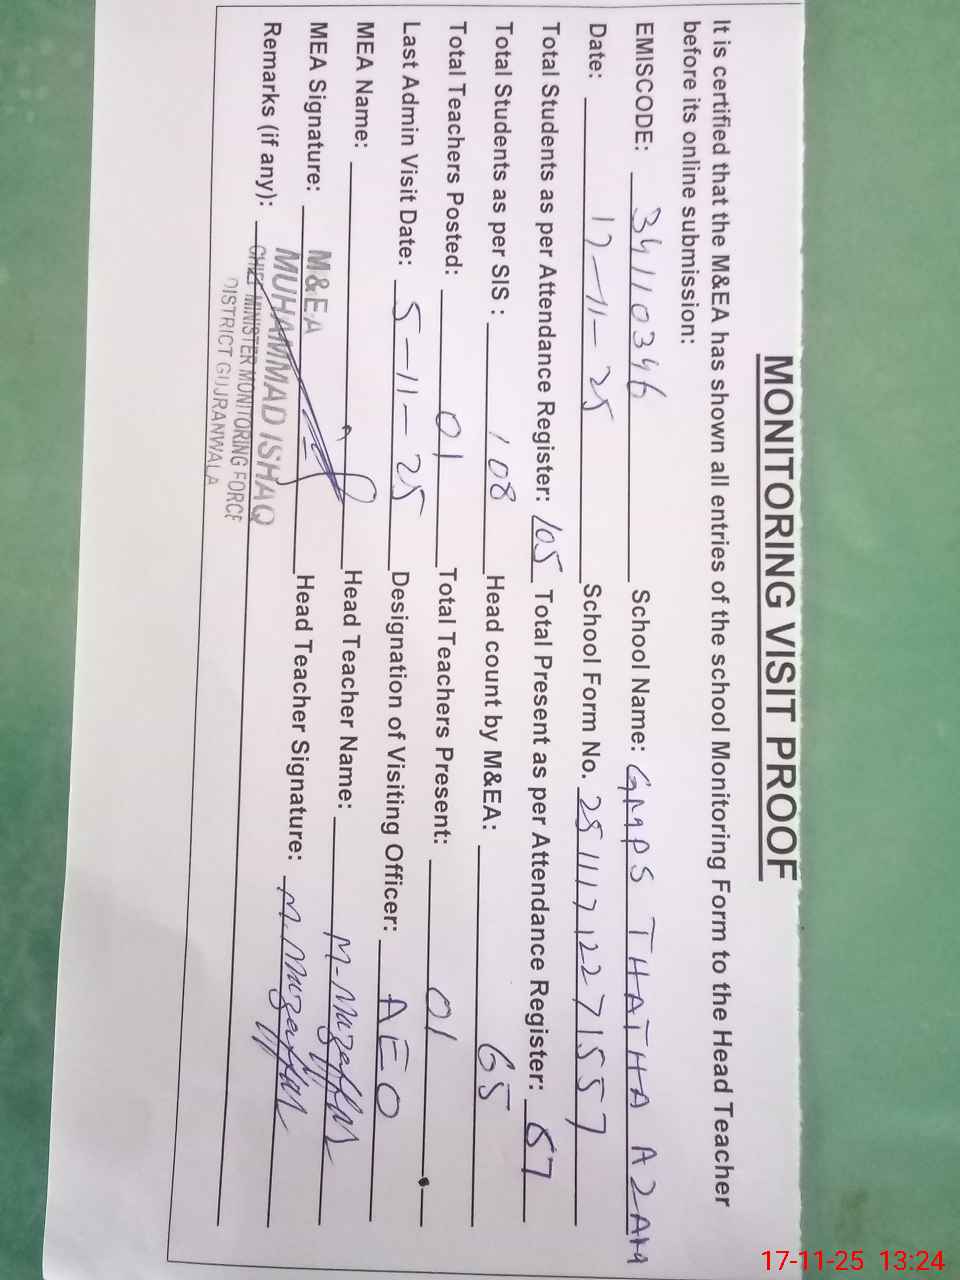 MONITORING VISIT PROOF
It is certified that the M&EA has shown all entries of the school Monitoring Form to the Head Teacher
before its online submission:
EMISCODE: 34110346 School Name: GMPS THATHA AZAM
Date: 17-11-25 School Form No. 25111712271557
Total Students as per Attendance Register: 105 Total Present as per Attendance Register: 67
Total Students as per SIS : 108 Head count by M&EA: 65
Total Teachers Posted: 01 Total Teachers Present: 01
Last Admin Visit Date: 5-11-25 Designation of Visiting Officer: AEO
MEA Name: Head Teacher Name: M. Muzaffar
MEA Signature: Head Teacher Signature: M. Muzaffar
Remarks (if any):
M&EA
MUHAMMAD ISHAQ
CHIEF MINISTER MONITORING FORCE
DISTRICT GUJRANWALA
17-11-25 13:24